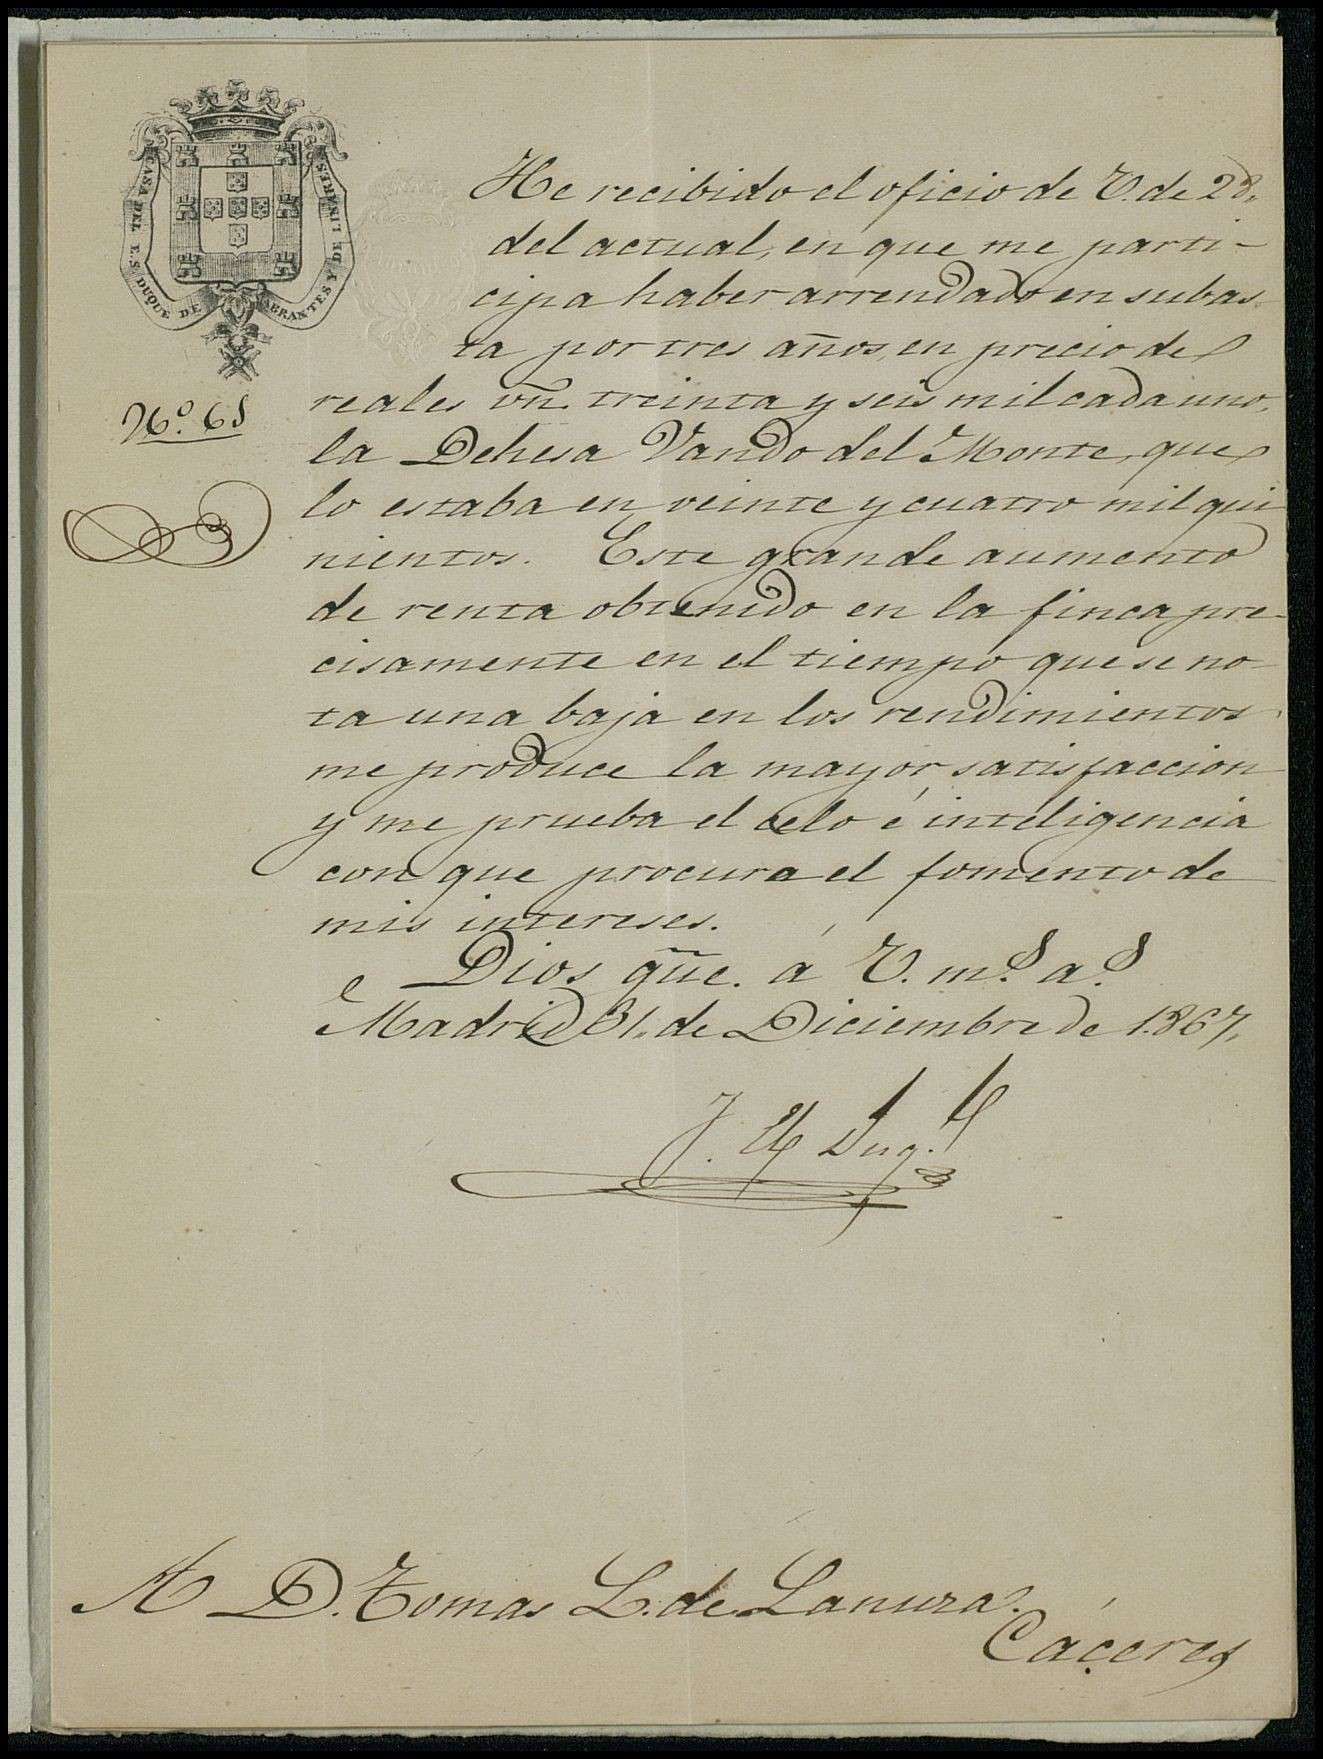 CASA DEL E.S. DUQUE DE ABRANTES Y DE LINARES
He recibido el oficio de V. de 28,
del actual, en que me parti-
cipa haber arrendado en subas-
ta por tres años, en precio de
reales vn. treinta y seis mil cada uno,
Nº. 68
la Dehesa Vando del Monte, que
lo estaba en veinte y cuatro mil qui
nientos. Este grande aumento
de renta obtenido en la finca pre-
cisamente en el tiempo que se no-
ta una baja en los rendimientos
me produce la mayor satisfaccion
y me prueba el celo é inteligencia
con que procura el fomento de
mis intereses.
Dios gũe. á V. m.s a.s
Madrid 31. de Diciembre de 1867.
A D. Tomas L. de Lanuza.
Cáceres